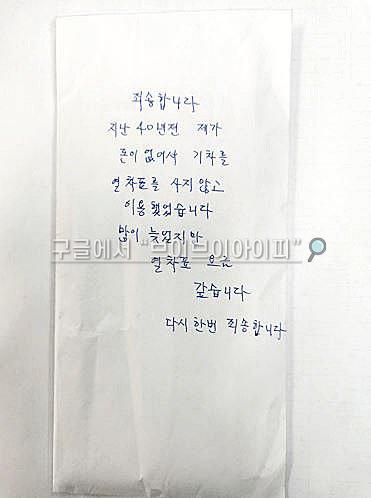 죄송합니다
지난 40년전 제가
돈이 없어서 기차를
열차표를 사지 않고
이용했었습니다
많이 늦었지만
구글에서 "브이브이아이피"
열차표 요금
갚습니다
다시한번 죄송합니다